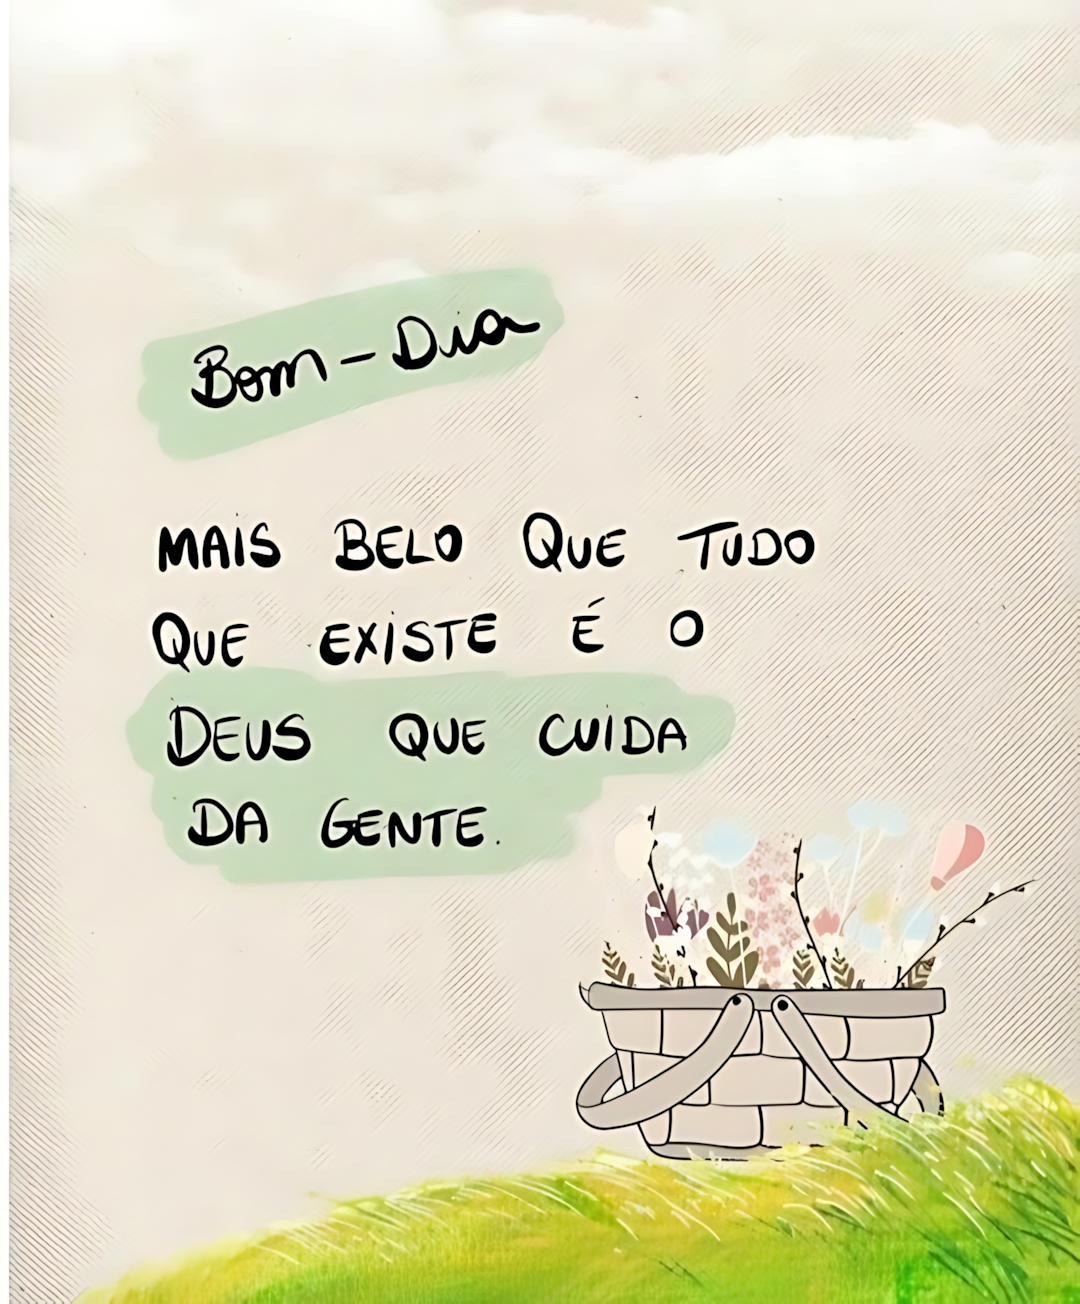 Bom-Dia
MAIS BELO QUE TUDO
QUE EXISTE É O
DEUS QUE CUIDA
DA GENTE.